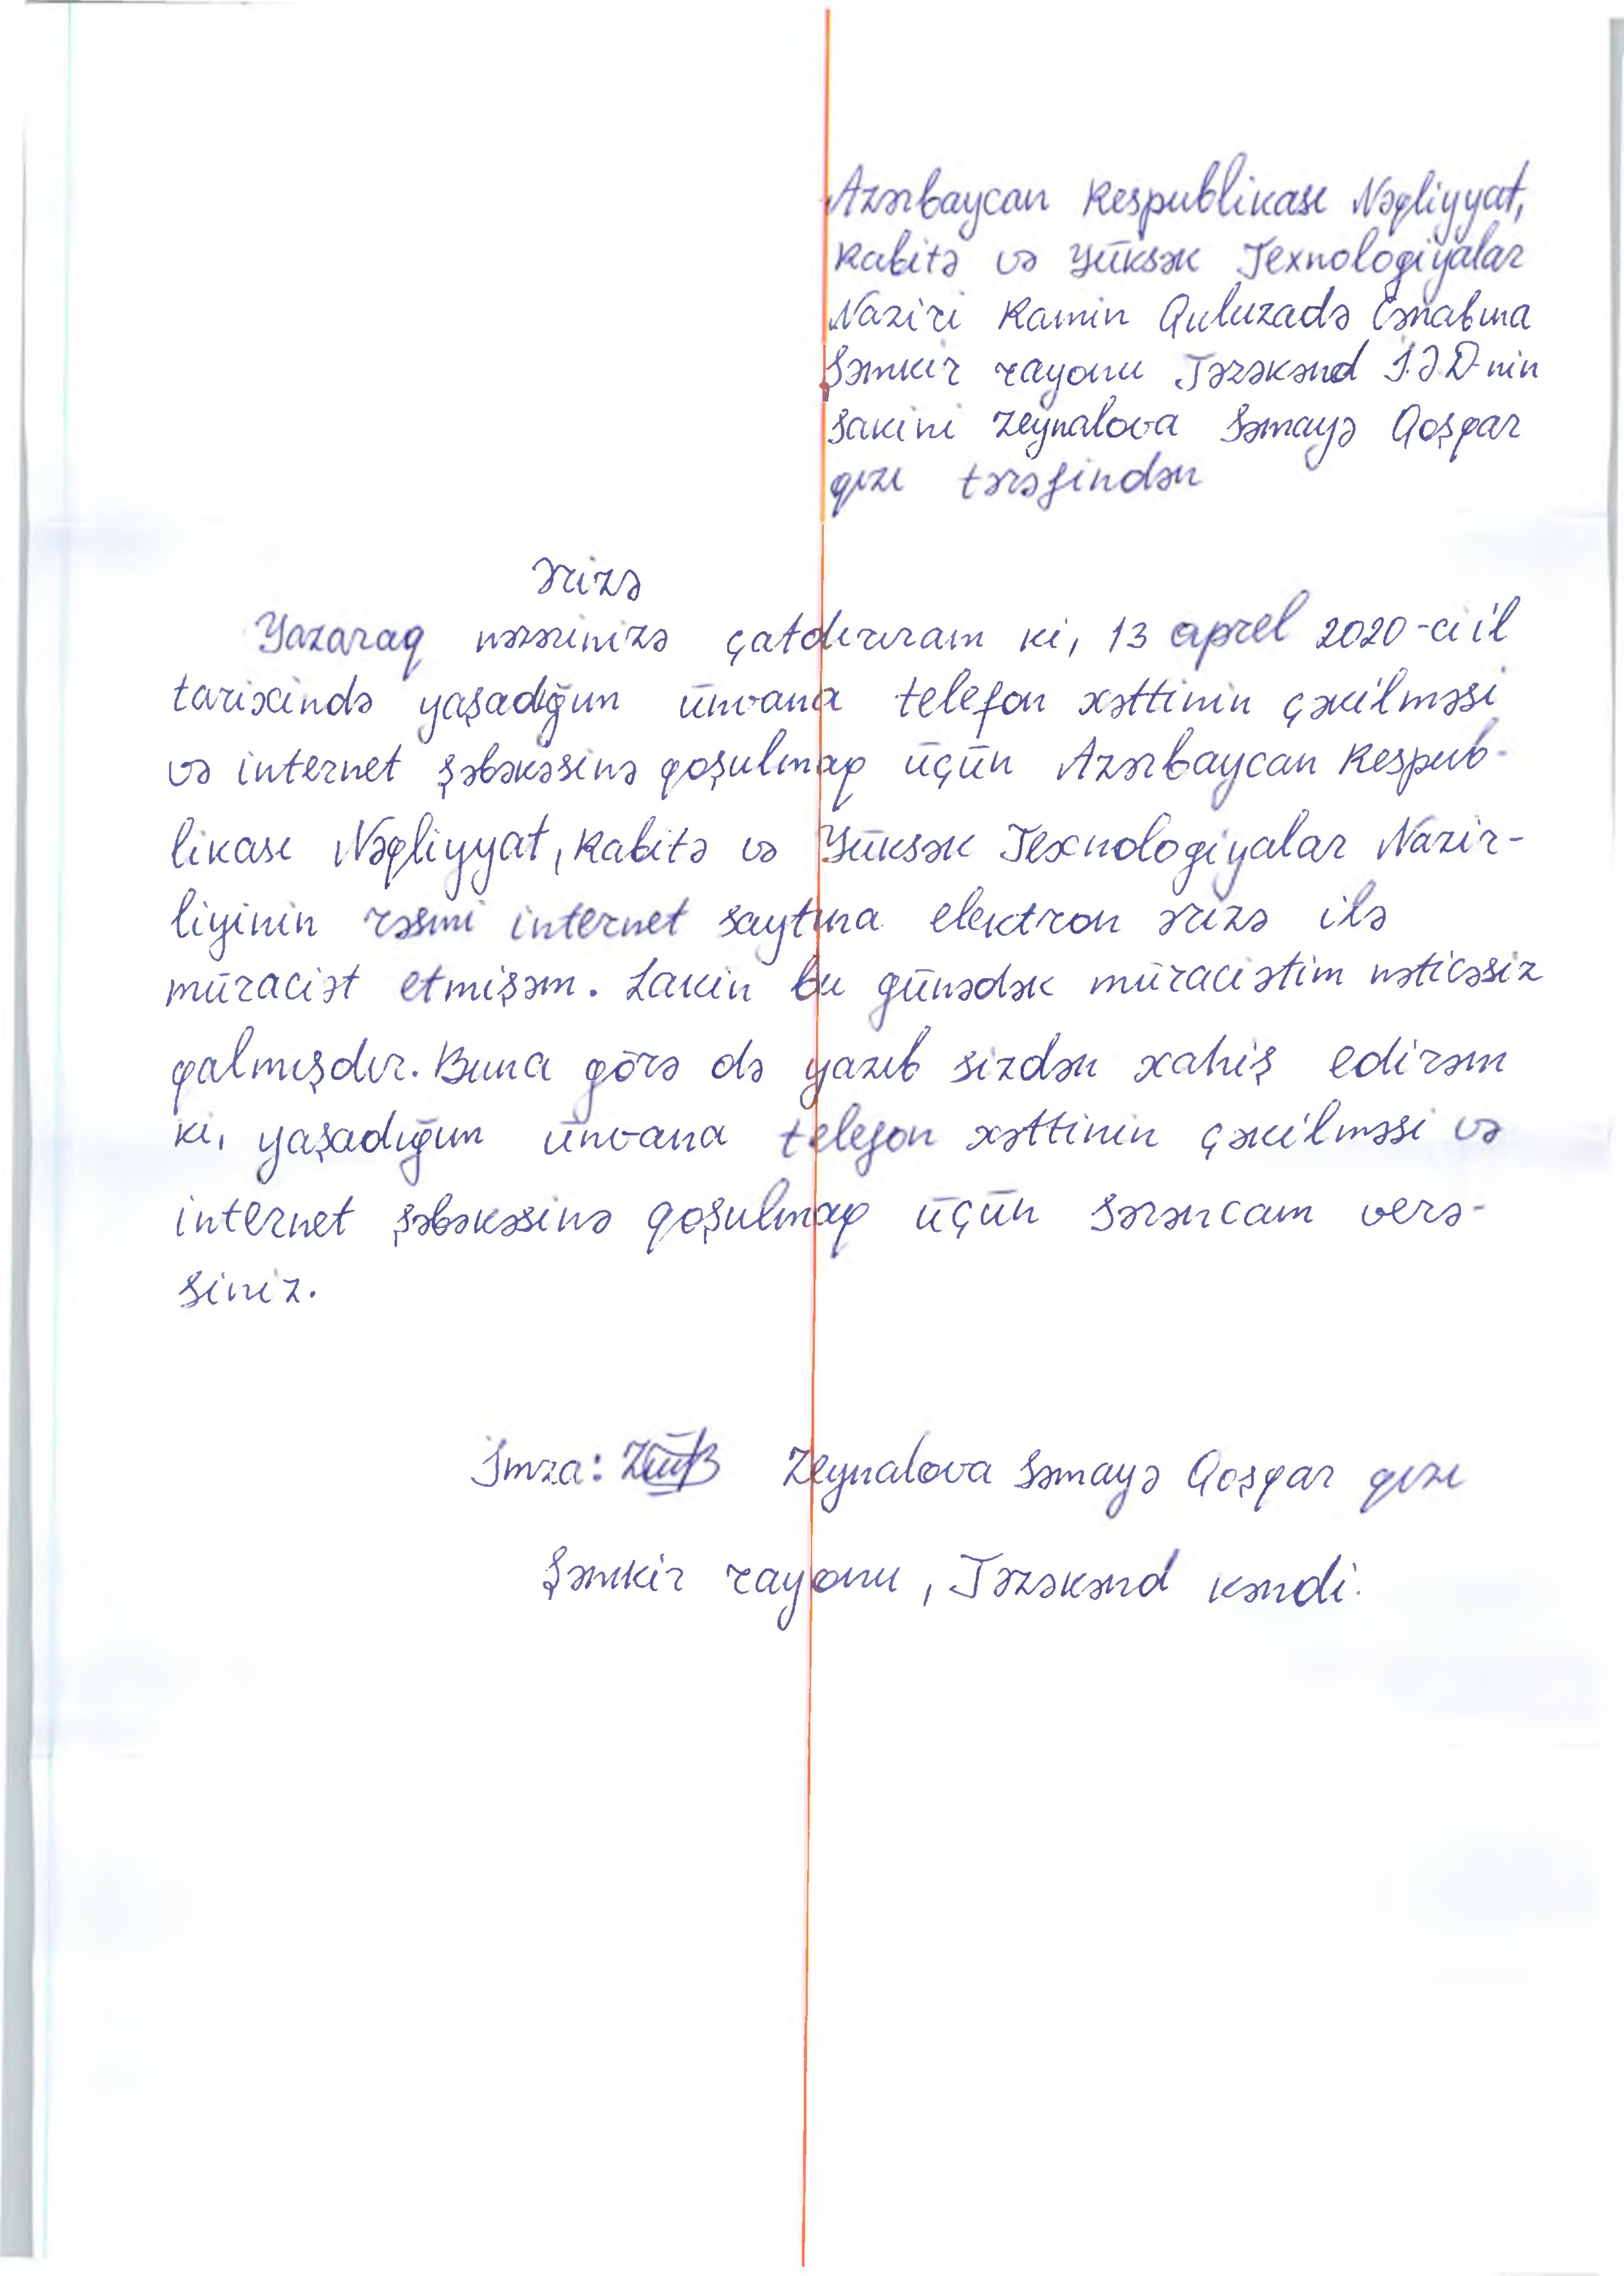 Azərbaycan Respublikası Nəqliyyat,
Rabitə və Yüksək Texnologiyalar
Naziri Ramin Quluzadə Cənabına
Şəmkir rayonu Təzəkənd İ.Ə.D-nin
sakini Zeynalova Səmayə Qoşqar
qızı tərəfindən
Ərizə
Yazaraq nəzərinizə çatdırıram ki, 13 aprel 2020-ci il
tarixində yaşadığım ünvana telefon xəttinin çəkilməsi
və internet şəbəkəsinə qoşulmaq üçün Azərbaycan Respub-
likası Nəqliyyat, Rabitə və Yüksək Texnologiyalar Nazir-
liyinin rəsmi internet saytına elektron ərizə ilə
müraciət etmişəm. Lakin bu günədək müraciətim nəticəsiz
qalmışdır. Buna görə də yazıb sizdən xahiş edirəm
ki, yaşadığım ünvana telefon xəttinin çəkilməsi və
internet şəbəkəsinə qoşulmaq üçün Sərəncam verə-
siniz.
İmza: Zeynalova Səmayə Qoşqar qızı
Şəmkir rayonu, Təzəkənd kəndi.